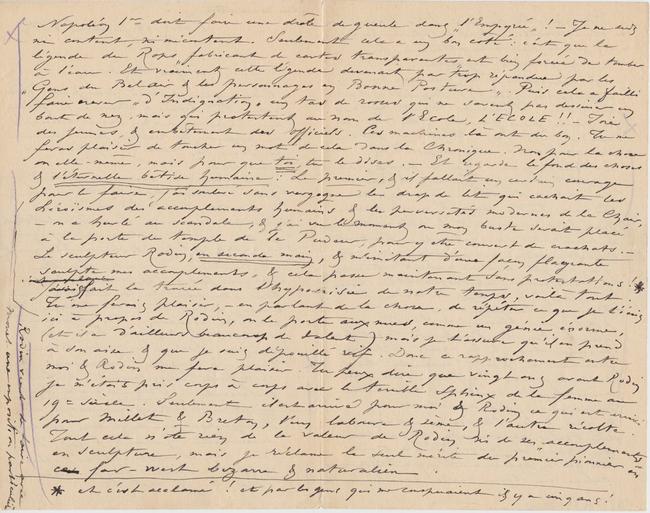 Napoléon 1er doit faire une drôle de gueule dans "l'Empyrée"! — Je ne suis
ni content, ni mécontent. Seulement cela a un bon coté: c'est que la
légende du Rops fabricant de cartes transparentes, est bien forcée de tomber
à l'eau. Et vraiment cette légende devenait par trop répandue par les
"Gens du Bel air & les personnages en Bonne Posture". Puis cela a failli
faire crever "d'Indignation" un tas de rosses qui ne savent pas dessiner un
bout de nez, mais qui protestent au nom de l'Ecole, L'ECOLE!! — Joie
des jeunes, & embêtement des officiels. Ces machines là ont du bon. Tu me
feras plaisir de toucher un mot de cela dans la Chronique. Non pour la chose
en elle-même, mais pour que toi tu le dises. — Et regarde le fond des choses
& l'éternelle bêtise humaine: Le premier, & il fallait un certain courage
pour le faire, j'ai soulevé sans vergogne les draps de lit qui cachaient les
Héroïsmes des accouplements humains & les perversités modernes de la Chair,
— on a hurlé au scandale, & j'ai vu le moment où mon buste serait placé
à la porte du temple de la Pudeur, pour y être couvert de crachats. —
Le sculpteur Rodin, en seconde main, & m'imitant d'une façon flagrante
sculpte mes accouplements, & cela passe maintenant sans protestations! *
J'avais fait la trouée dans l'hypocrisie de notre temps, voilà tout!
Tu me ferais plaisir, — en parlant de la chose, de répéter ce que je t'écris
ici à propos de Rodin, on le porte aux nues, comme un génie énorme,
(et il a d'ailleurs beaucoup de talent,) mais je t'assure qu'il en prend
à son aise & que je suis dépouillé vif. Donc ce rapprochement entre
moi & Rodin me fera plaisir. Tu peux dire que vingt ans avant Rodin
je m'étais pris corps à corps avec le terrible Sphinx de la femme au
19e siècle. Seulement il est arrivé pour moi & Rodin ce qui est arrivé
pour Millet & Breton, l'un laboure & sème, & l'autre récolte.
Tout cela n'ôte rien de la valeur de Rodin ni de ses accouplements
en sculpture, mais je réclame le seul mérite de premier pionnier en
ce far-west bizarre & naturalien.
* et c'est acclamé! et par les gens qui me conspuaient il y a cinq ans!
Rodin vient de faire une